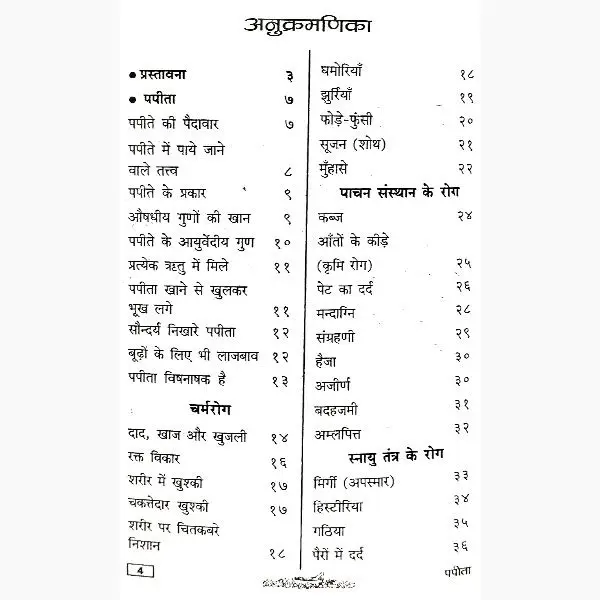 अनुक्रमणिका
• प्रस्तावना ३
• पपीता ७
पपीते की पैदावार ७
पपीते में पाये जाने
वाले तत्त्व ८
पपीते के प्रकार ९
औषधीय गुणों की खान ९
पपीते के आयुर्वेदीय गुण १०
प्रत्येक ऋतु में मिले ११
पपीता खाने से खुलकर
भूख लगे ११
सौन्दर्य निखारे पपीता १२
बूढ़ों के लिए भी लाजबाव १२
पपीता विषनाषक है १३
चर्मरोग
दाद, खाज और खुजली १४
रक्त विकार १६
शरीर में खुश्की १७
चकत्तेदार खुश्की १७
शरीर पर चितकबरे
निशान १८
4
घमोरियाँ १८
झुर्रियाँ १९
फोड़े-फुंसी २०
सूजन (शोथ) २१
मुँहासे २२
पाचन संस्थान के रोग
कब्ज २४
आँतों के कीड़े
(कृमि रोग) २५
पेट का दर्द २६
मन्दाग्नि २८
संग्रहणी २९
हैजा ३०
अजीर्ण ३०
बदहजमी ३१
अम्लपित्त ३२
स्नायु तंत्र के रोग
मिर्गी (अपस्मार) ३३
हिस्टीरिया ३४
गठिया ३५
पैरों में दर्द ३६
पपीता